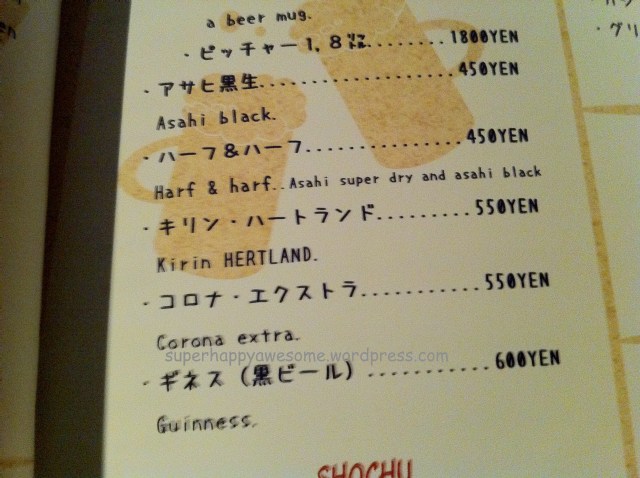 a beer mug.
・ピッチャー1,8㍑........1800YEN
・アサヒ黒生....................450YEN
Asahi black.
・ハーフ&ハーフ................450YEN
Harf & harf..Asahi super dry and asahi black
・キリン・ハートランド.........550YEN
Kirin HERTLAND.
・コロナ・エクストラ...........550YEN
Corona extra.
superhappyawesome.wordpress.com
・ギネス(黒ビール)...........600YEN
Guinness.
SHOCHU